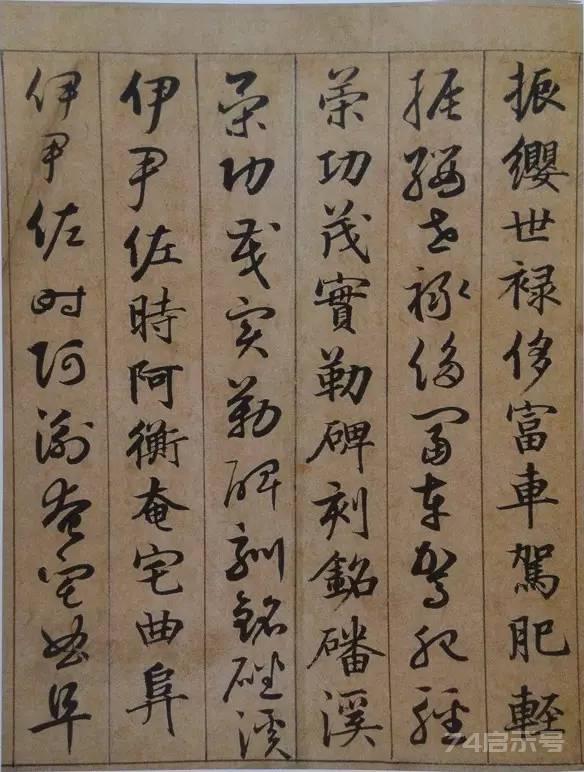 振纓世禄侈富車駕肥輕
振纓世禄侈富車駕肥輕
策功茂實勒碑刻銘磻溪
策功茂實勒碑刻銘磻溪
伊尹佐時阿衡奄宅曲阜
伊尹佐時阿衡奄宅曲阜
74启示号